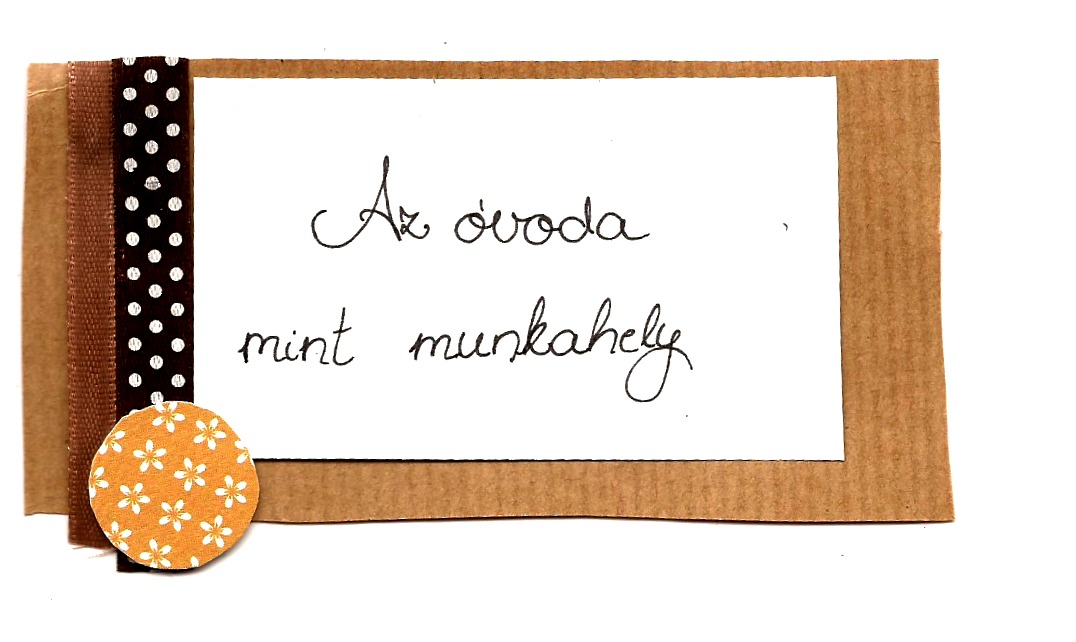 Az óvoda
mint munkahely